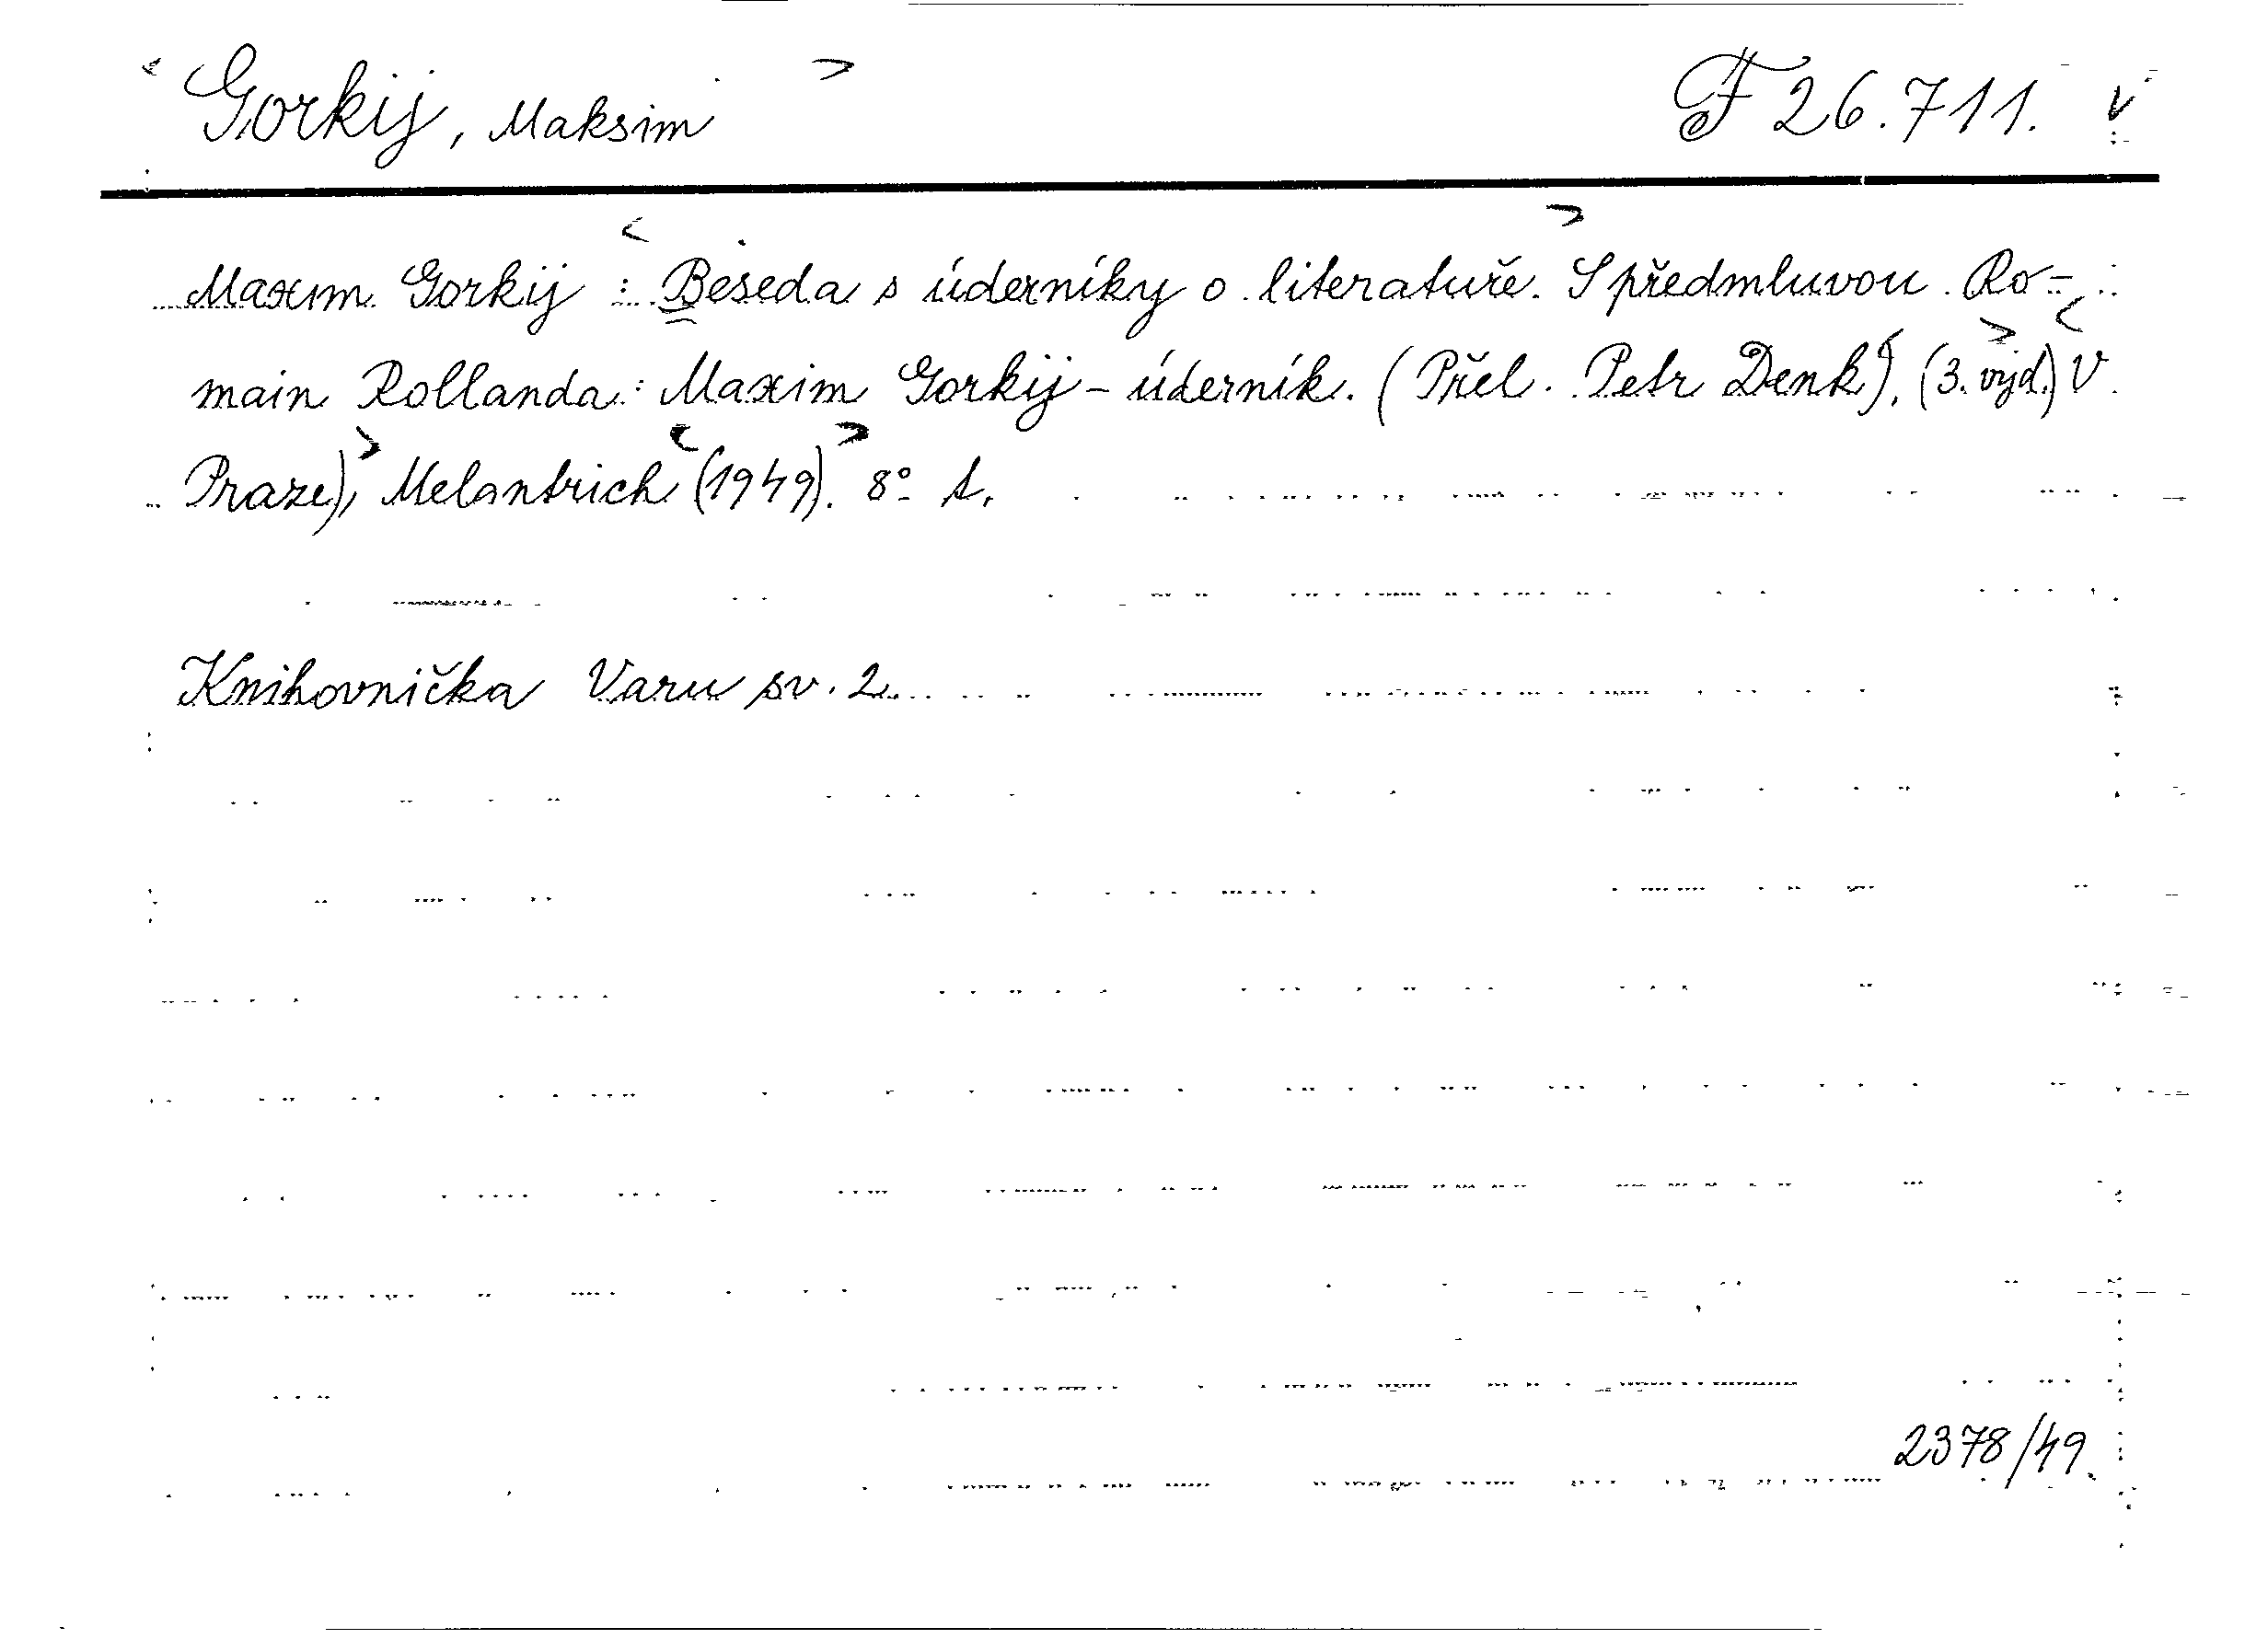 Gorkij, Maksim F 26.711. v
Maxim Gorkij : Beseda s úderníky o literatuře. S předmluvou Ro-
main Rollanda: Maxim Gorkij - úderník. (Přel. Petr Denk), (3. vyd.) V
Praze), Melantrich (1949). 8° s.
Knihovnička Varu sv. 2.
2378/49.